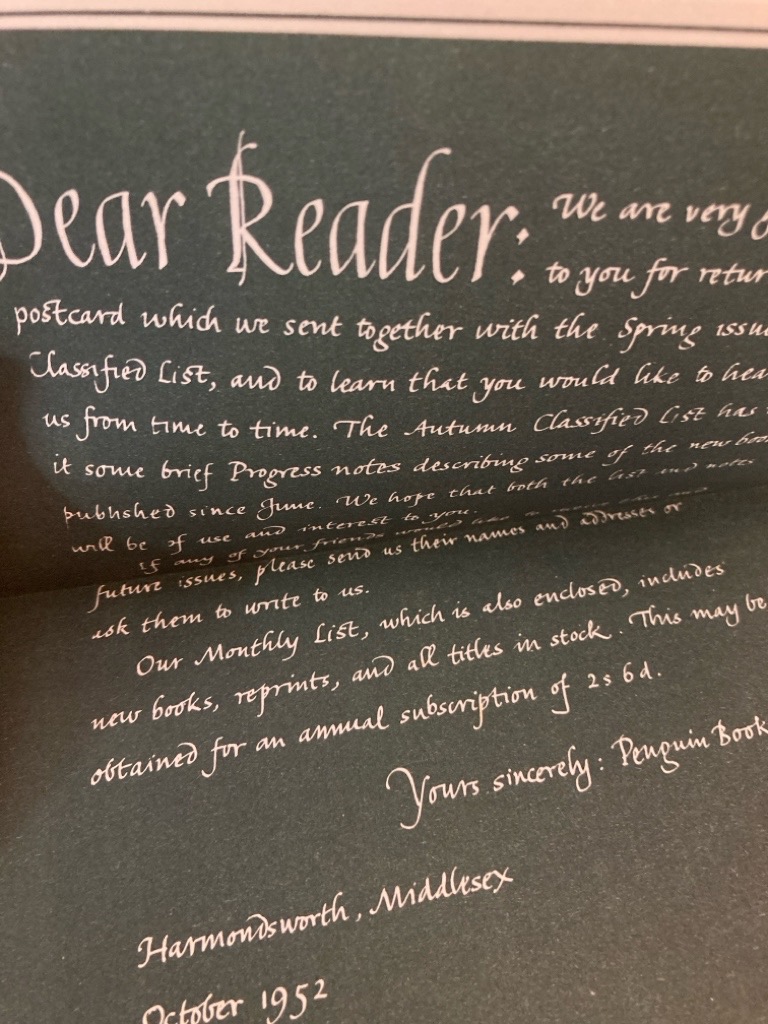 Dear Reader: We are very
to you for
postcard which we sent together with the Spring
Classified List, and to learn that you would like to
us from time to time. The Autumn Classified List has
it some brief Progress notes describing some of the new
published since June. We hope that both the list and notes
will be of use and interest to you.
If any of your friends would like to
future issues, please send us their names and addresses or
ask them to write to us.
Our Monthly List, which is also enclosed, includes
new books, reprints, and all titles in stock. This may be
obtained for an annual subscription of 2s 6d.
Yours sincerely: Penguin
Harmondsworth, Middlesex
October 1952